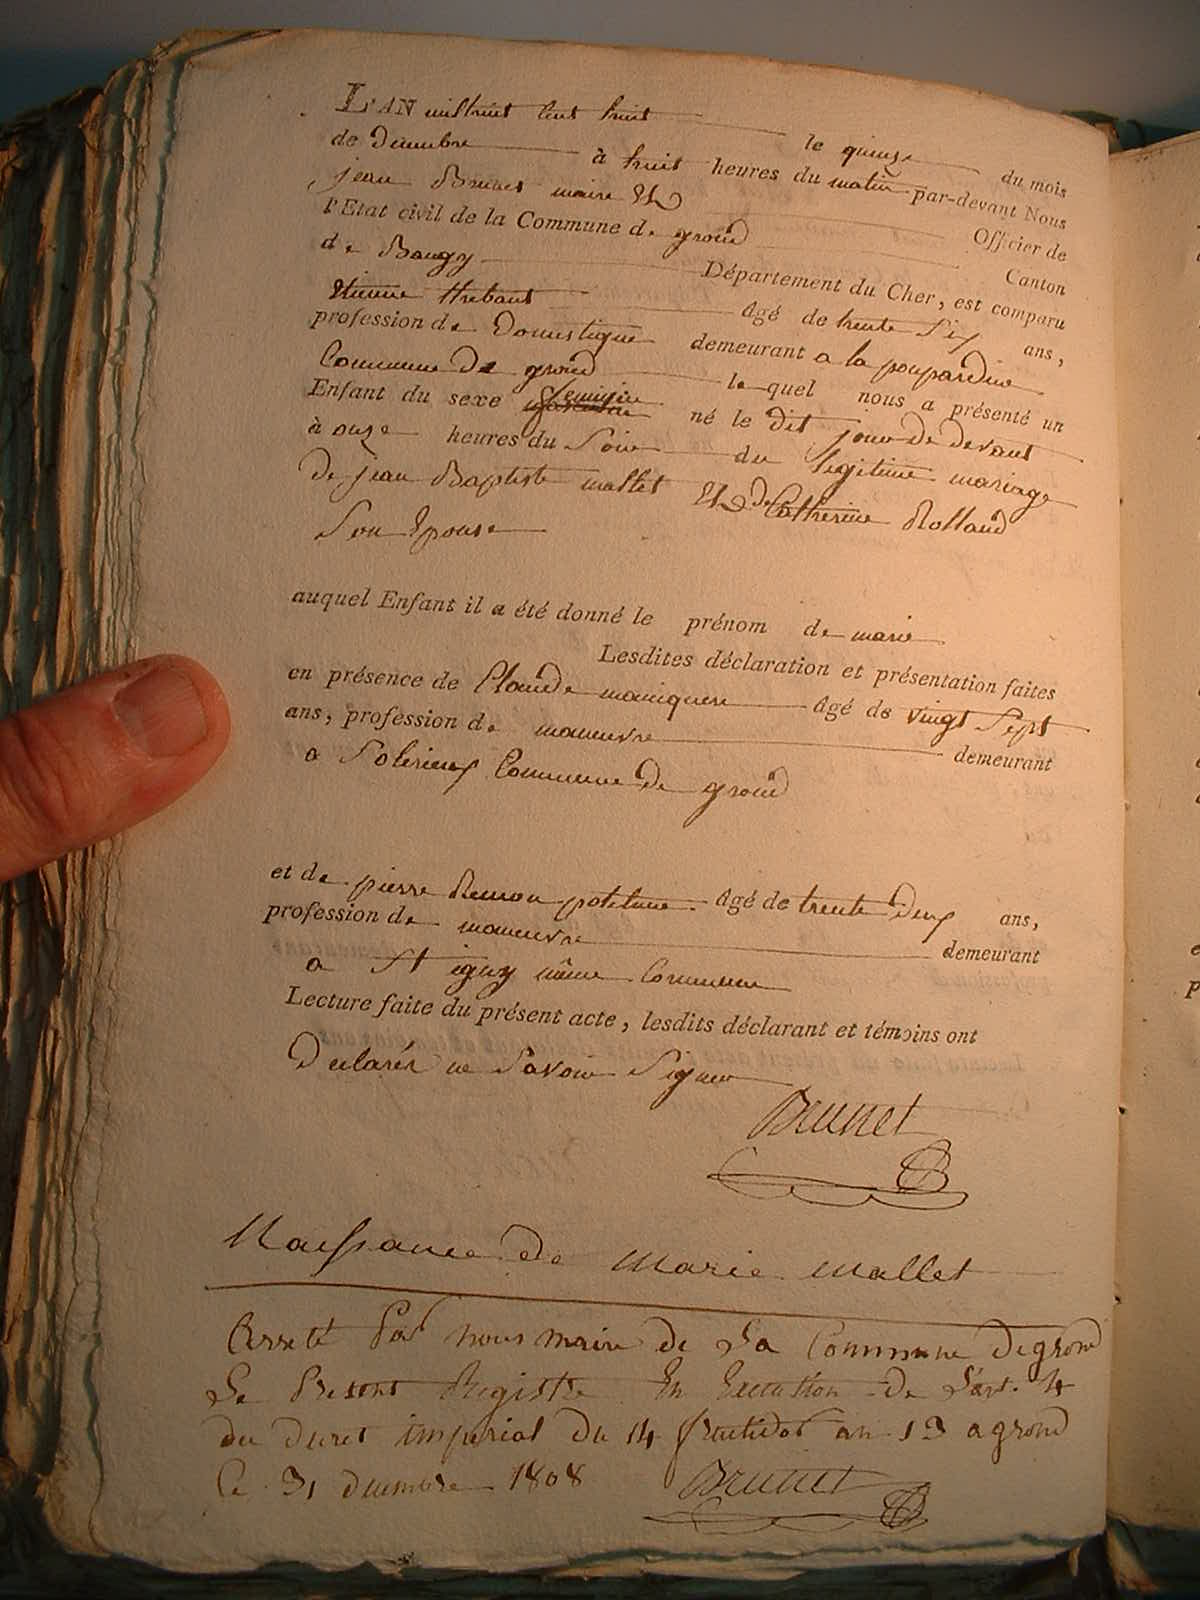 L'AN mil huit Cent huit le quinze du mois
de decembre à huit heures du matin par-devant Nous
jean Brunet maire Et Officier de
l'Etat civil de la Commune de groud Canton
de Baugy Département du Cher, est comparu
Etienne thebaut âgé de trente Six ans,
profession de Domestique demeurant a la poupardine
Commune de groud lequel nous a présenté un
Enfant du sexe feminin né le dit jour de devant
à onze heures du Soir du legitime mariage
de jean Baptiste mallet Et de Catherine Rolland
Son Epouse
auquel Enfant il a été donné le prénom de marie
Lesdites déclaration et présentation faites
en présence de Claude maniquere âgé de vingt Sept
ans, profession de maneuvre demeurant
a Solerieux Commune de groud
et de pierre Remon potelune âgé de trente deux ans,
profession de maneuvre demeurant
a St igny même Commune
Lecture faite du présent acte, lesdits déclarant et témoins ont
Declarés ne Savoir Signer
Brunet
Naissance de Marie Mallet
Arreté Par nous maire de La Commune de grond
Le Present Registre En Execution de L'art. 4
du decret imperial du 14 fructidor an 13 a grond
Ce 31 decembre 1808 Brunet